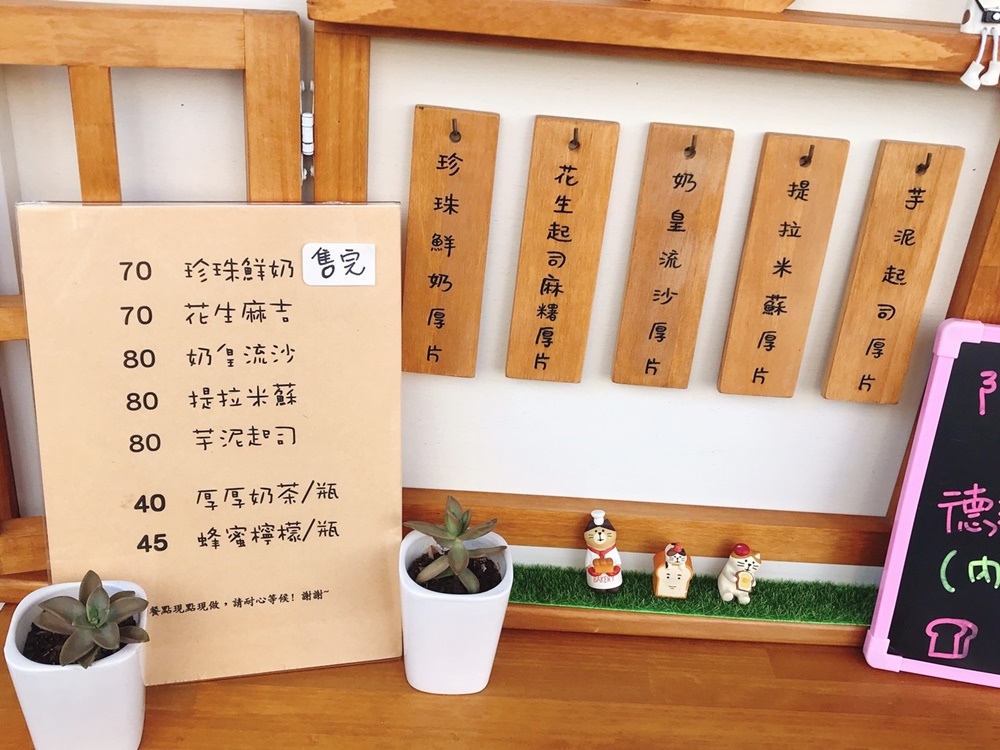 70 珍珠鮮奶 售完
70 花生麻吉
80 奶皇流沙
80 提拉米蘇
80 芋泥起司
40 厚厚奶茶/瓶
45 蜂蜜檸檬/瓶
餐點現點現做，請耐心等候！謝謝~
珍珠鮮奶厚片
花生起司麻糬厚片
奶皇流沙厚片
提拉米蘇厚片
芋泥起司厚片
BAKERY
德
(內